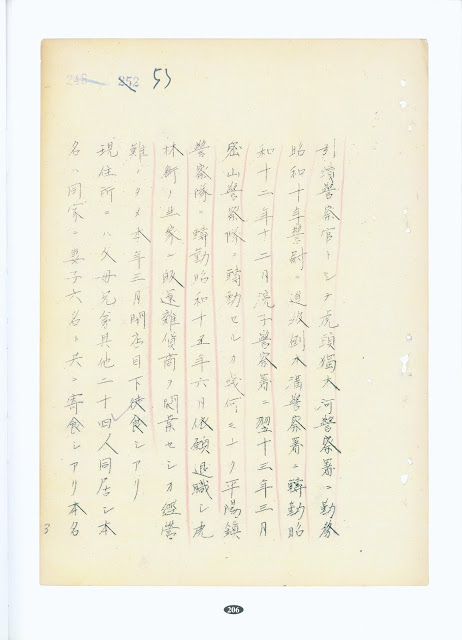 248 852 53
引續警察官トシテ虎頭獨木河警察署ニ勤務
昭和十年警尉ニ進級倒木溝警察署ニ轉勤昭
和十二年十二月湾子警察署ニ翌十三年三月
密山警察隊ニ轉勤セルカ幾何モナク平陽鎮
警察隊ニ轉勤昭和十五年六月依願退職シ虎
林街ノ生家ニ販運雜貨商ヲ開業セシカ經營
難ノタメ本年三月閉店目下徒食シアリ
現住所ニハ父母兄弟其他二十四人同居シ本
名ハ同家ニ妻子六名ト共ニ寄食シアリ本名
3
206